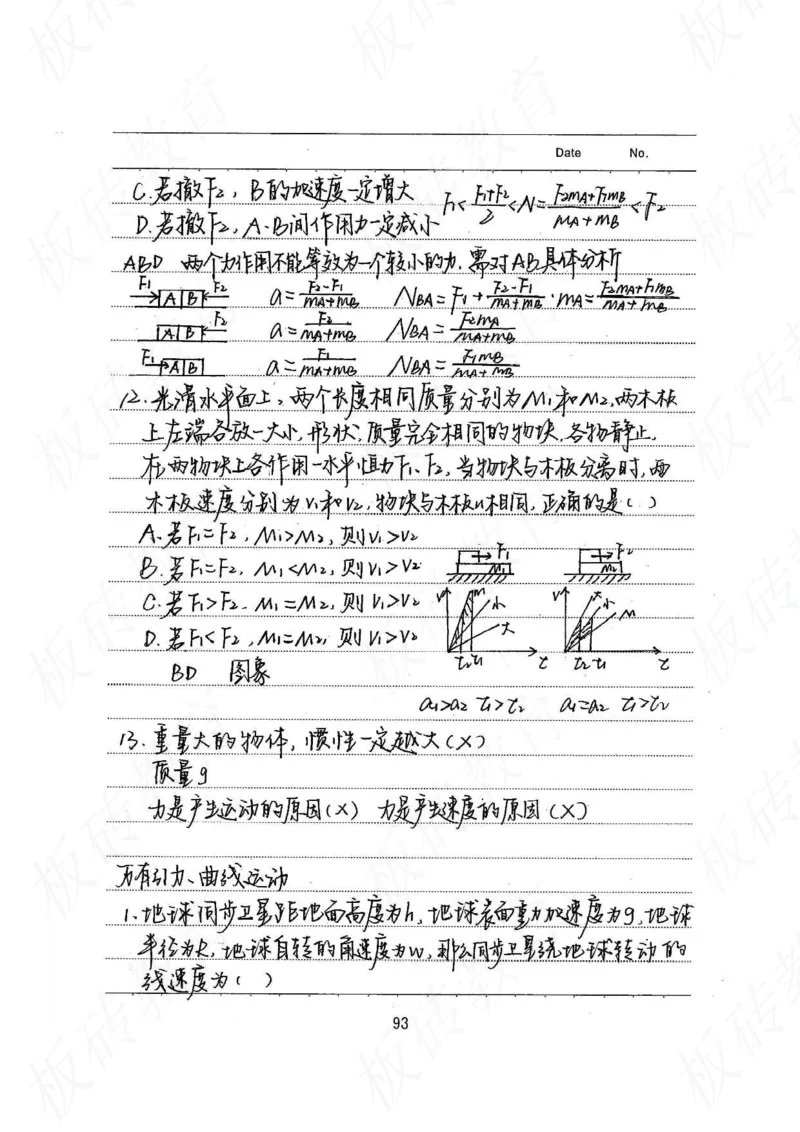 Date No.
C.若撤F₂，B的加速度一定增大 F₁<(F₁+F₂)/2<N=(F₂mA+F₁mB)/(mA+mB)<F₂
D.若撤F₂，A、B间作用力一定减小
ABD 两个力作用不能等效为一个较小的力，需对AB具体分析
F₁ A B F₂ a=(F₂-F₁)/(mA+mB) NBA=F₁+(F₂-F₁)/(mA+mB)·mA=(F₂mA+F₁mB)/(mA+mB)
A B F₂ a=F₂/(mA+mB) NBA=F₂mA/(mA+mB)
F₁ A B a=F₁/(mA+mB) NBA=F₁mB/(mA+mB)
12.光滑水平面上，两个长度相同质量分别为M₁和M₂,两木板
上左端各放一大小、形状、质量完全相同的物块，各物静止，
在两物块上各作用一水平恒力F₁、F₂，当物块与木板分离时，两
木板速度分别为v₁和v₂，物块与木板u相同，正确的是（ ）
A.若F₁=F₂，M₁>M₂，则v₁>v₂
B.若F₁=F₂，M₁<M₂，则v₁>v₂
C.若F₁>F₂，M₁=M₂，则v₁>v₂
D.若F₁<F₂，M₁=M₂，则v₁>v₂
BD 图象
F₁ M₁ F₂ M₂
v m 小 大 t₂ t₁ t
v 大 小 M t₂ t₁ t
a₁>a₂ t₁>t₂ a₁=a₂ t₁>t₂
13.重量大的物体，惯性一定越大（×）
质量g
力是产生运动的原因（×） 力是产生速度的原因（×）
万有引力、曲线运动
1.地球同步卫星距地面高度为h，地球表面重力加速度为g,地球
半径为R，地球自转的角速度为w，那么同步卫星绕地球转动的
线速度为（ ）
93
板砖教育